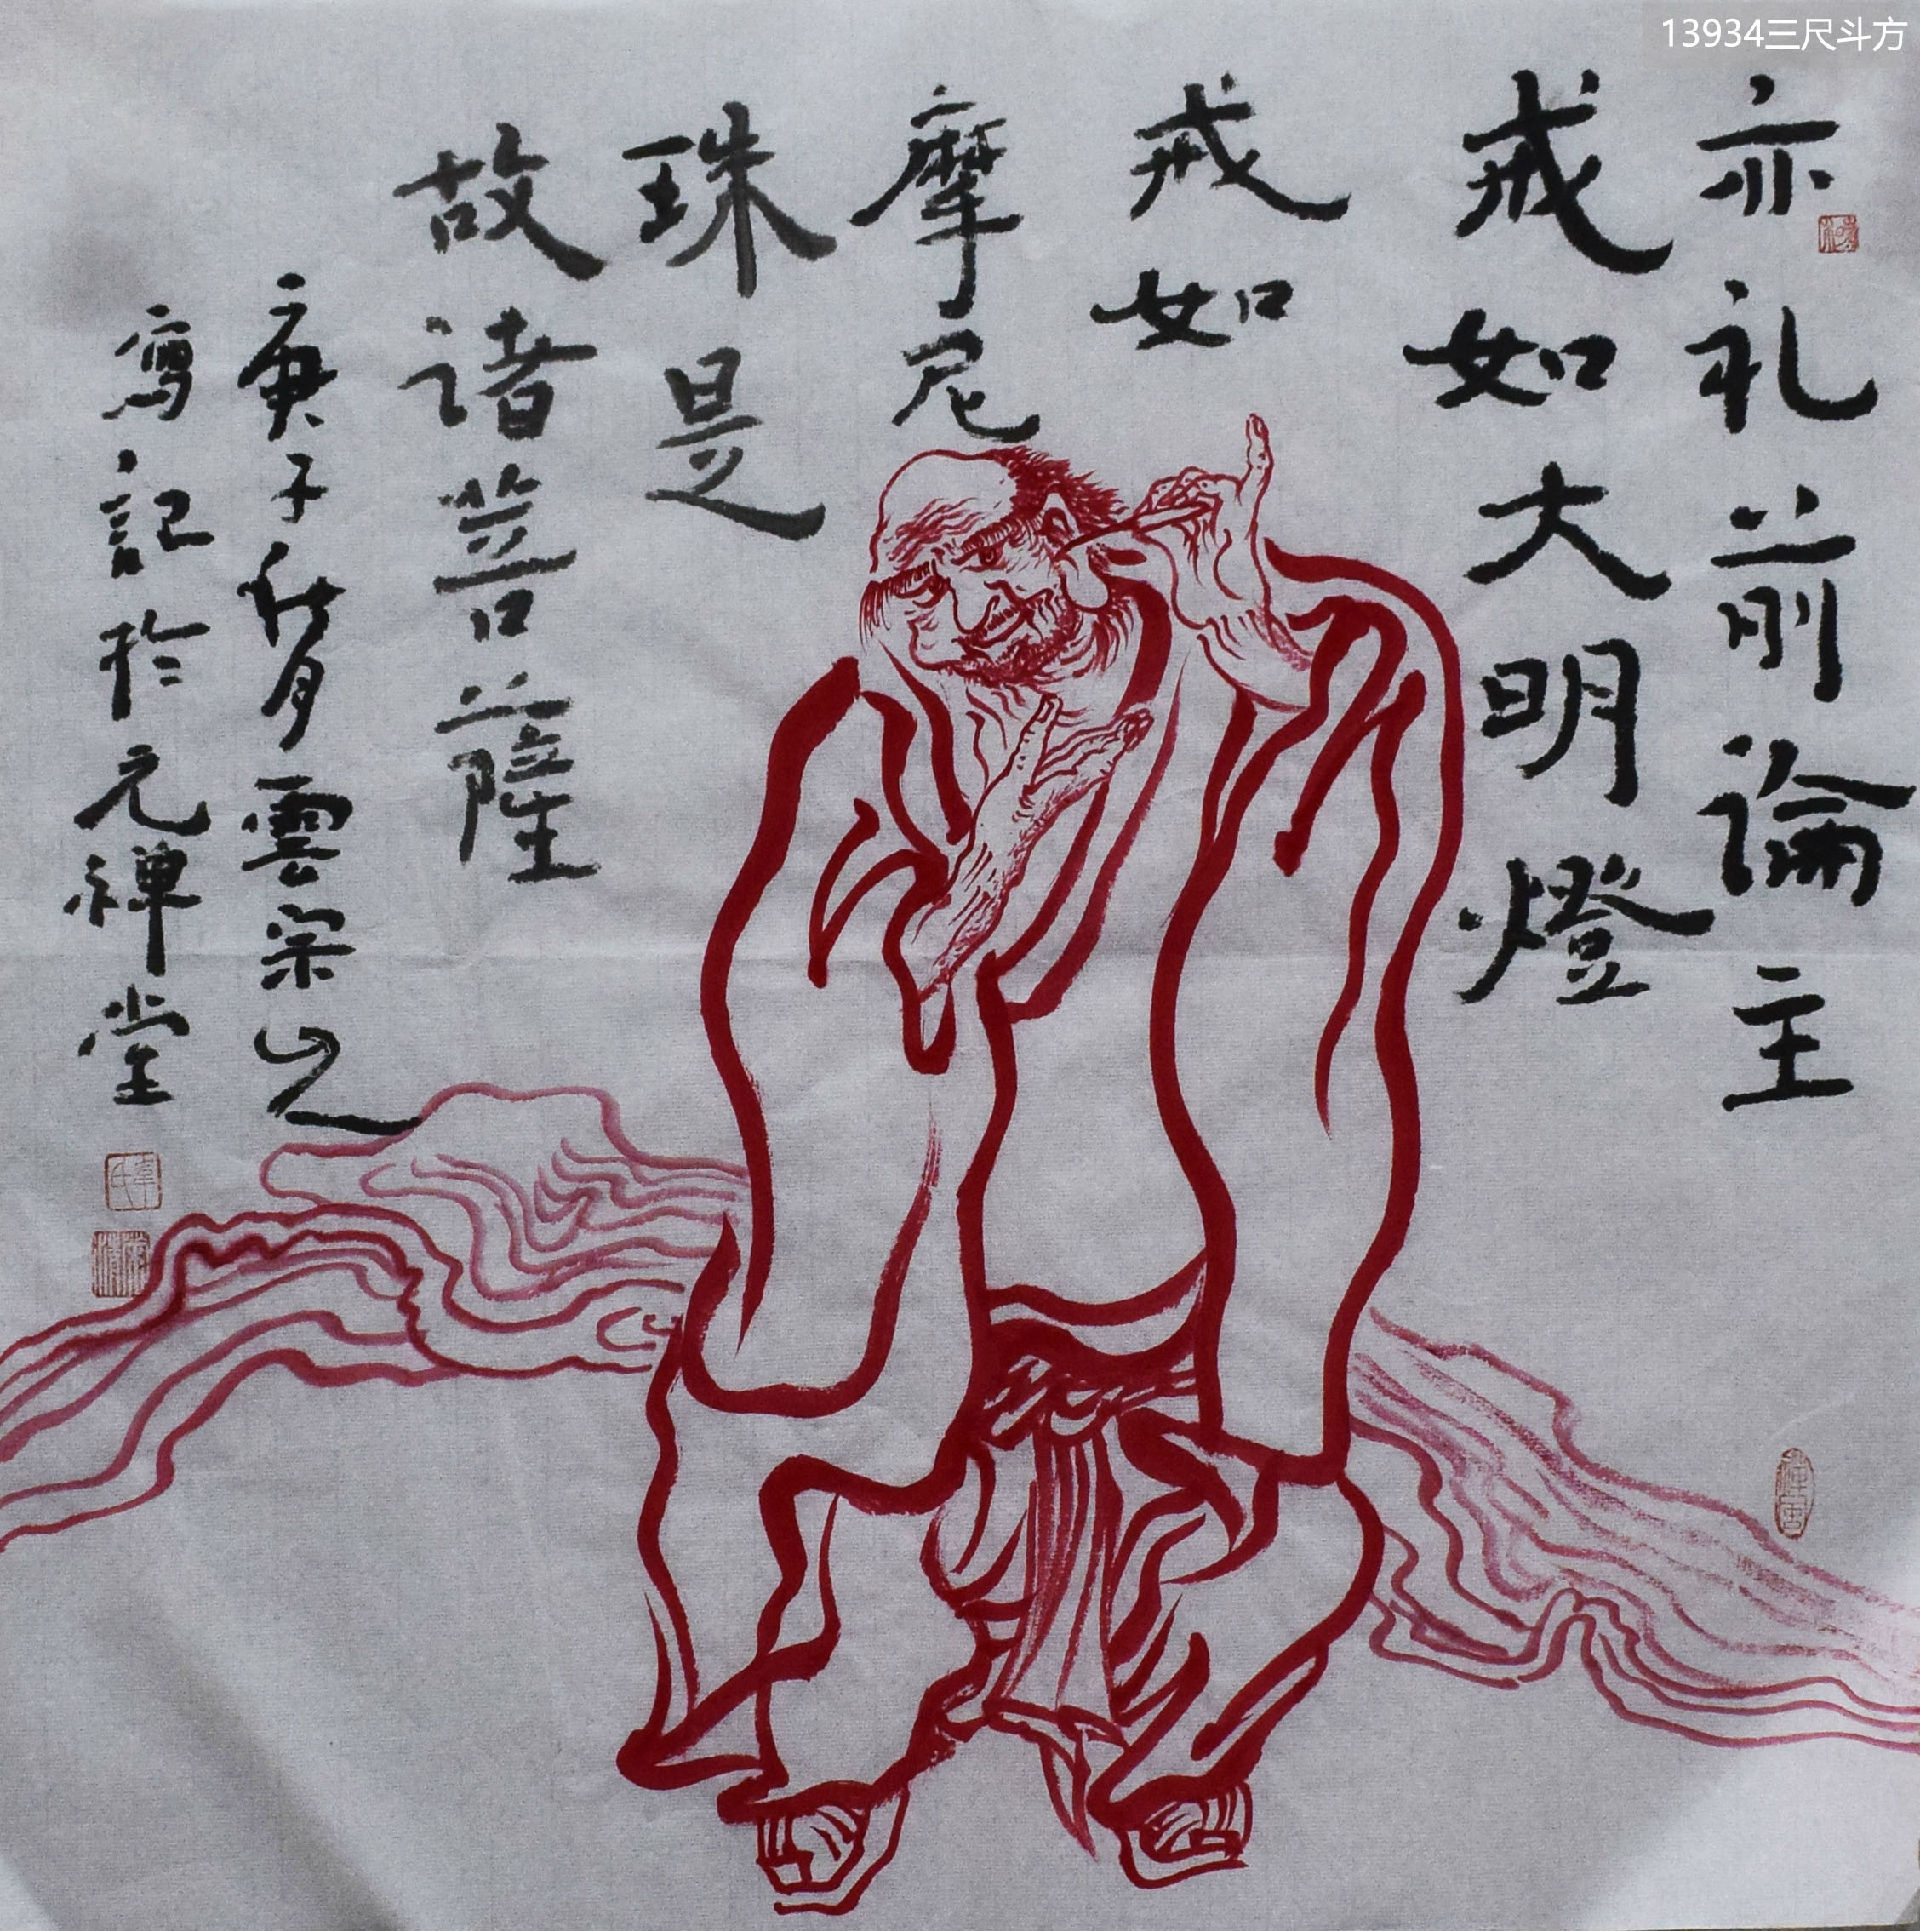 13934三尺斗方
亦礼前論主
戒如大明燈
戒如
摩尼
珠是
故诸菩薩
庚子秋月雲宗山
寫記於元禅堂